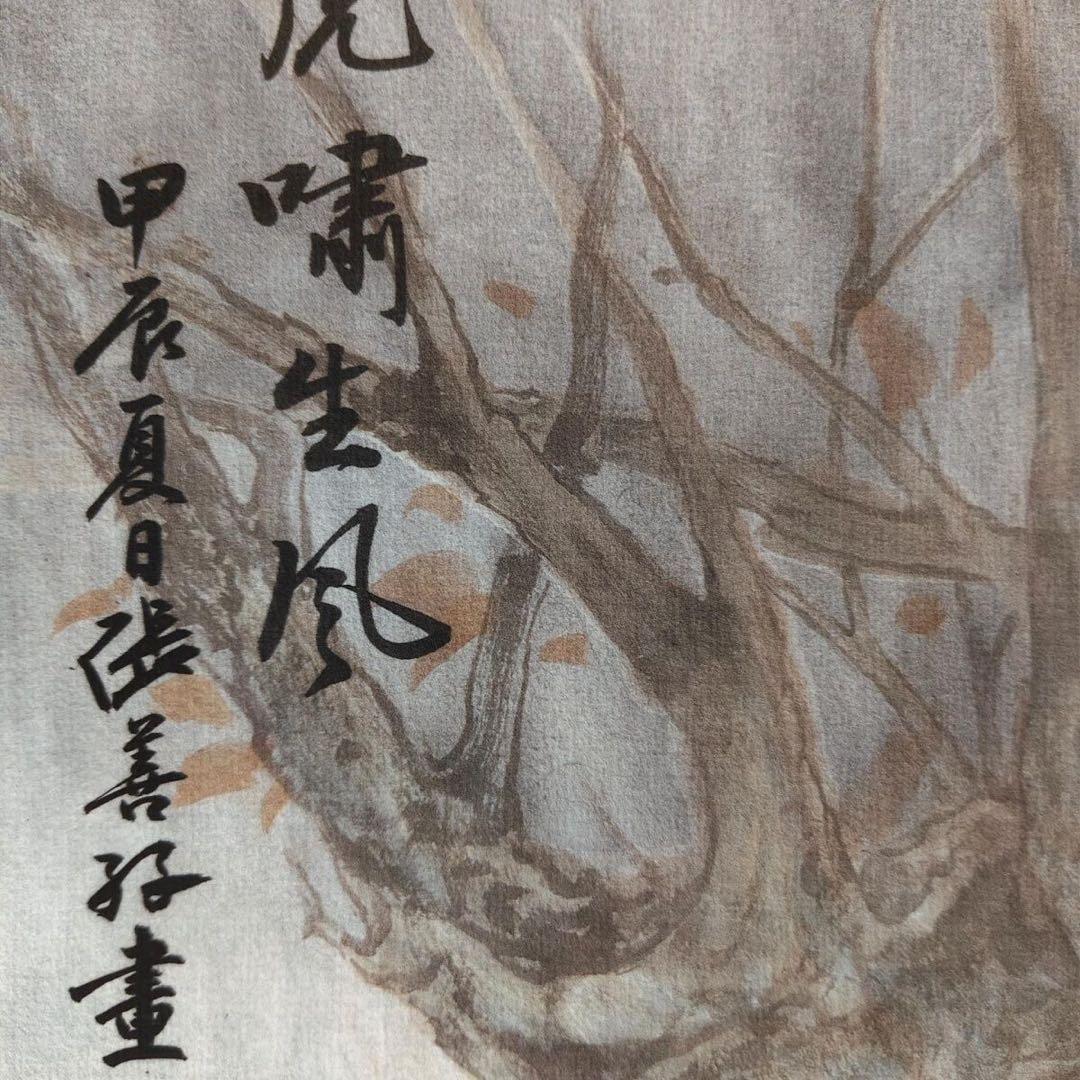 虎嘯生風
甲辰夏日張善孖畫